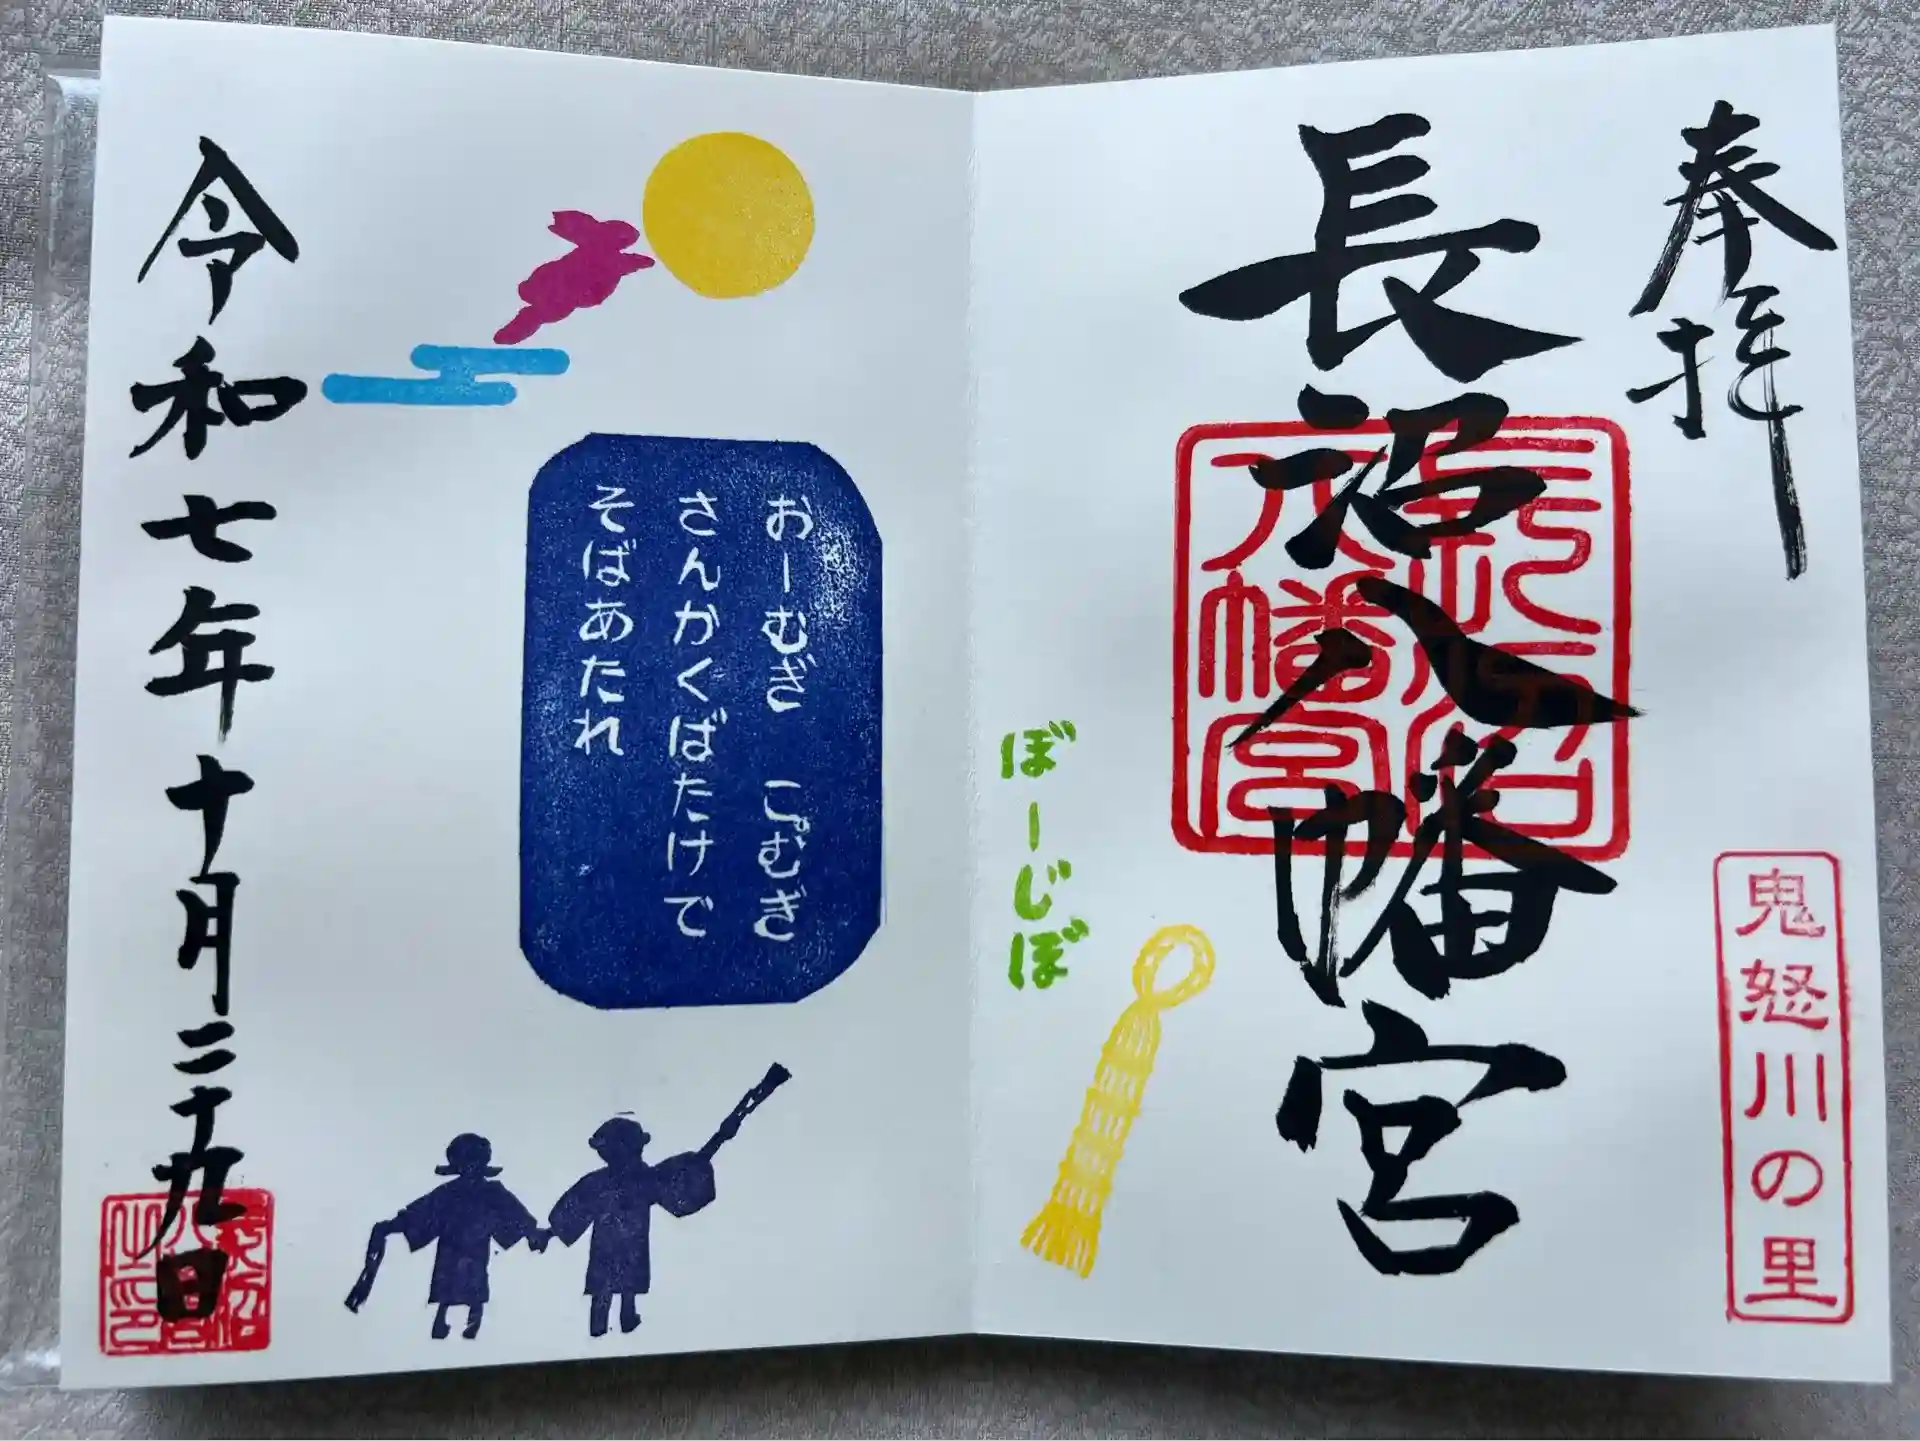 奉拝
長沼八幡宮
長沼八幡宮
鬼怒川の里
ぼーじぼ
おーむぎ　こむぎ
さんかくばたけで
そばあたれ
令和七年十月二十九日